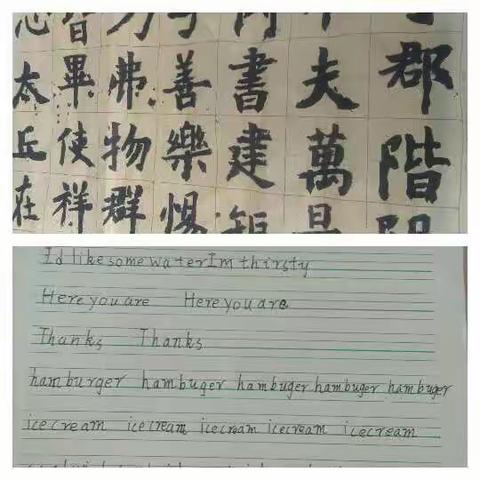 郡階
夫萬
書建
善樂惕
物群
皆畢使祥
太丘在
I'd like some water I'm thirsty
Here you are Here you are
Thanks Thanks
hamburger hambuger hambuger hambuger hambuger
icecream icecream icecream icecream icecream